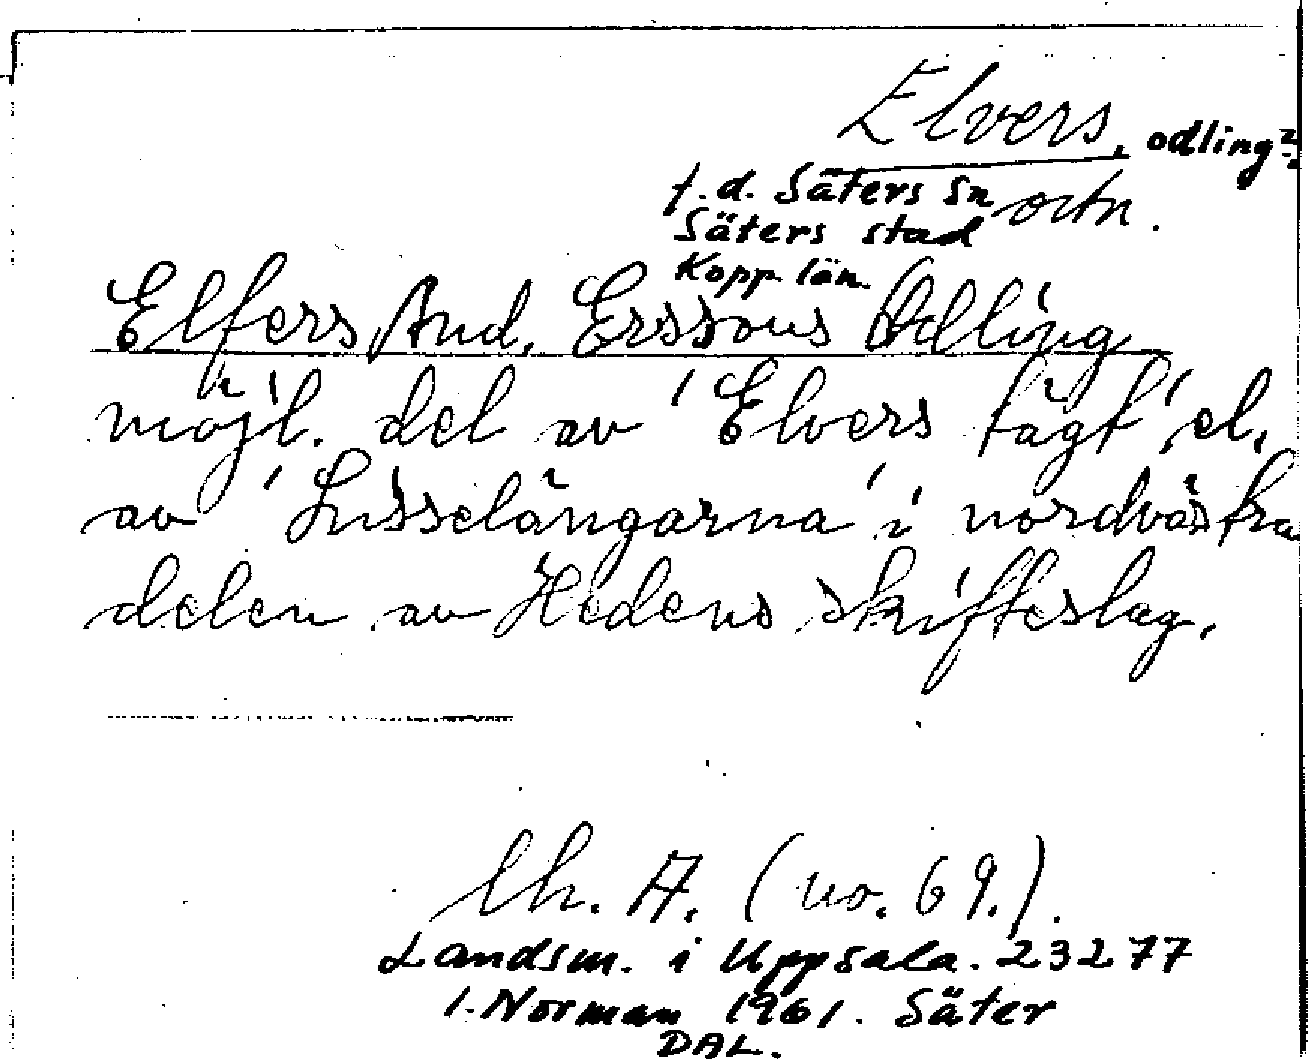 Elvers, odling?
f.d. Säters sn ortn.
Säters stad
Kopp. län.
Elfers And. Erssons Odling
möjl. del av 'Elvers tägt', el.
av 'Lisselängarna' i nordvästra
delen av Hedens skifteslag.
Ch. A. (no. 69.).
Landsm. i Uppsala. 23277
I. Norman 1961. Säter
DAL.